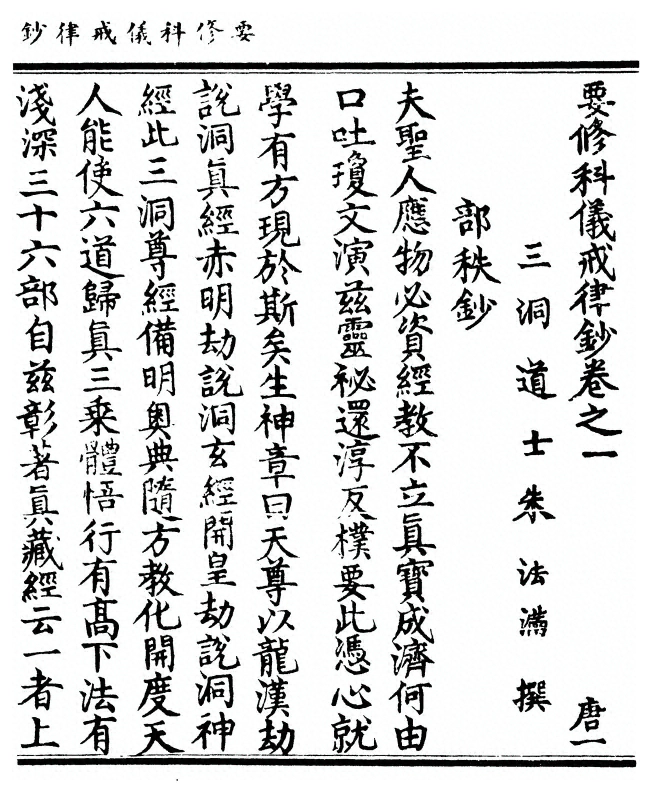 要修科儀戒律鈔
要修科儀戒律鈔卷之一 唐一
三洞道士朱法滿撰
部秩鈔
夫聖人應物必資經教不立眞寶成濟何由
口吐瓊文演茲靈祕還淳反樸要此憑心就
學有方現於斯矣生神章曰天尊以龍漢劫
說洞眞經赤明劫說洞玄經開皇劫說洞神
經此三洞尊經備明奧典隨方教化開度天
人能使六道歸眞三乘體悟行有高下法有
淺深三十六部自茲彰著眞藏經云一者上